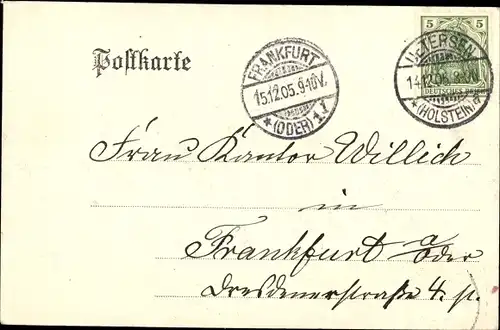 Postkarte
FRANKFURT
15.12.05.9-10V.
*(ODER)1.*
5 5
UETERSEN
14.12.05
DEUTSCHES REICH
*(HOLSTEIN)*
Frau Kantor Willich
in
Frankfurt a/Oder
Dresdenerstraße 4. pt.